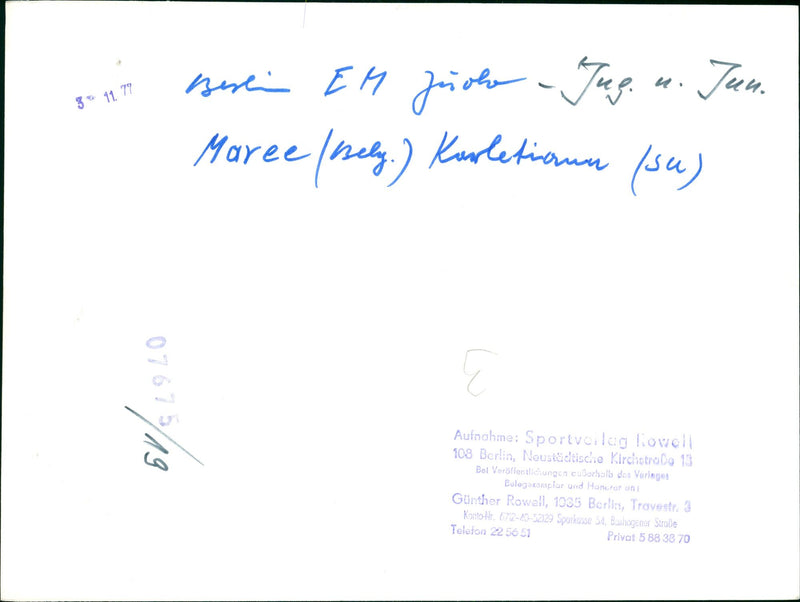 3- 11.77
Berlin EM Judo - Jug. u. Jun.
Maree (Belg.) (SU)
07675
/19
3
Aufnahme: Sportverlag Rowell
108 Berlin, Neustädtische Kirchstraße 15
Bei Veröffentlichungen außerhalb des Verlages
Belegexemplar und Honorar an:
Günther Rowell, 1035 Berlin, Travestr. 3
Konto-Nr. 6712-40-5029 Sparkasse 54, Boxhagener Straße
Telefon 22 56 51 Privat 5 88 38 70